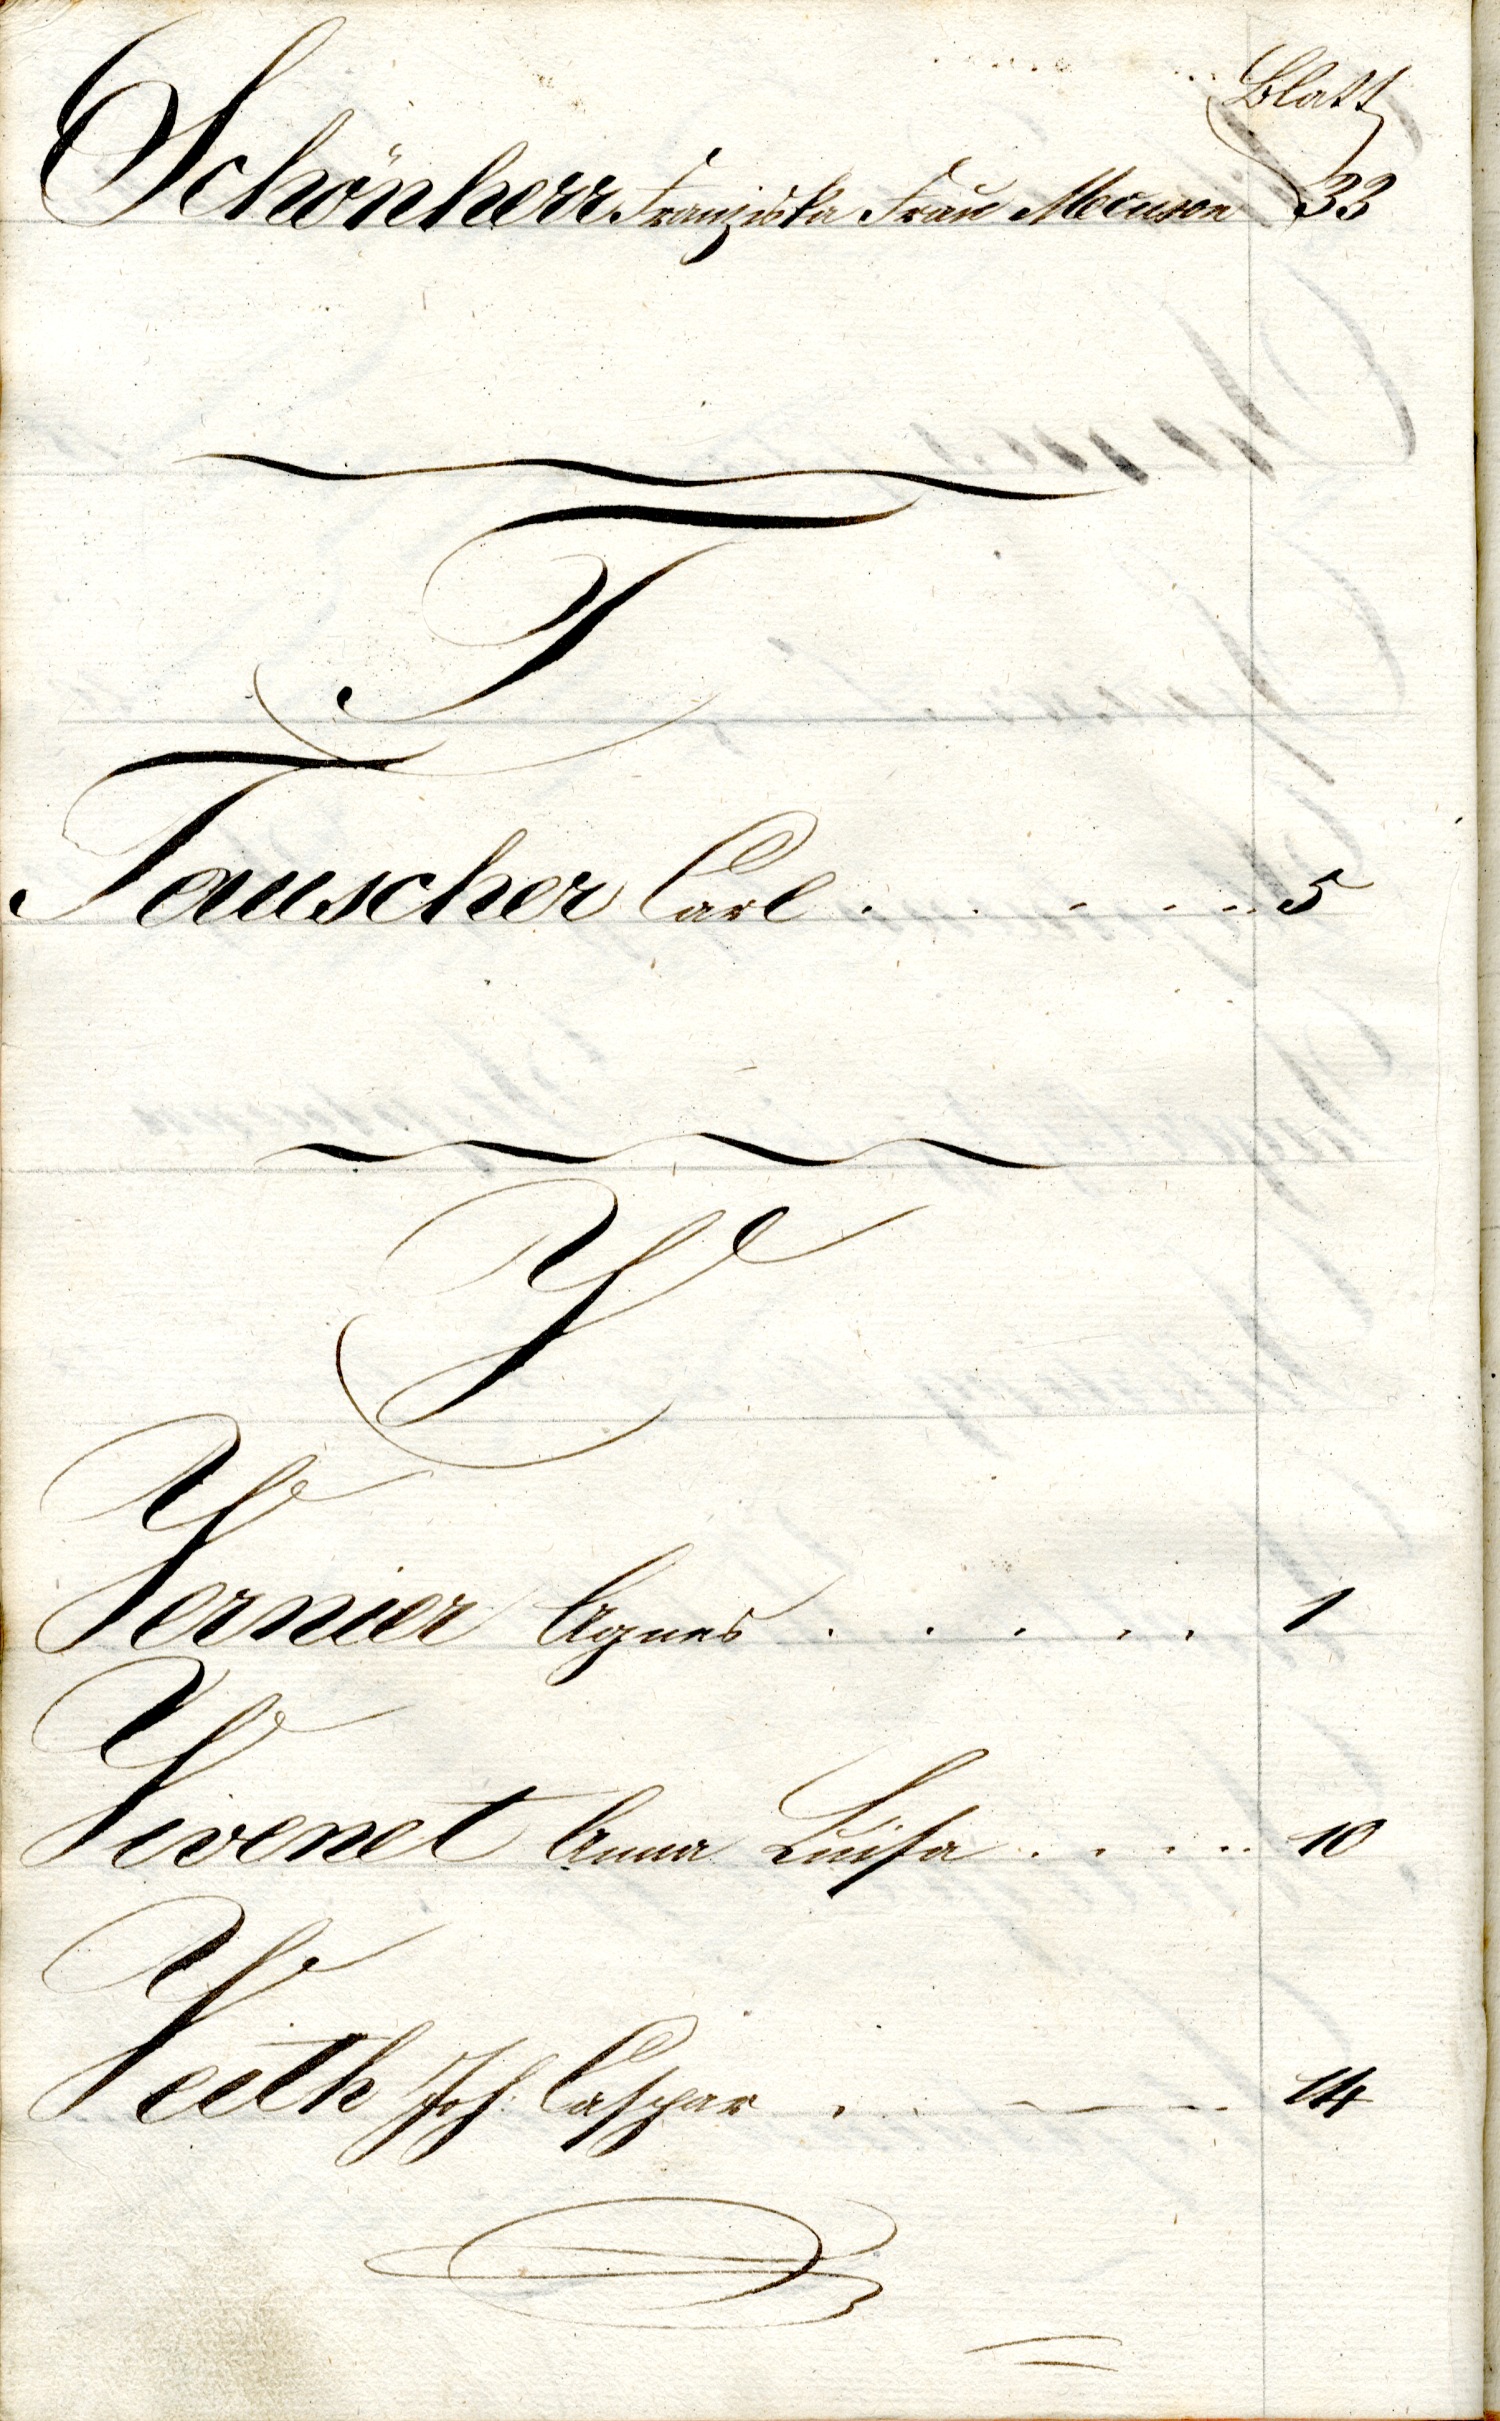 Blatt
Schönherr Franziska Frau Mouson 33
T
Tauscher Carl . . . . . . 5
V
Vernier Agnes . . . . . 1
Vivenot Anna Luisa . . . . . 10
Veith Joh. Caspar . . . . . 14